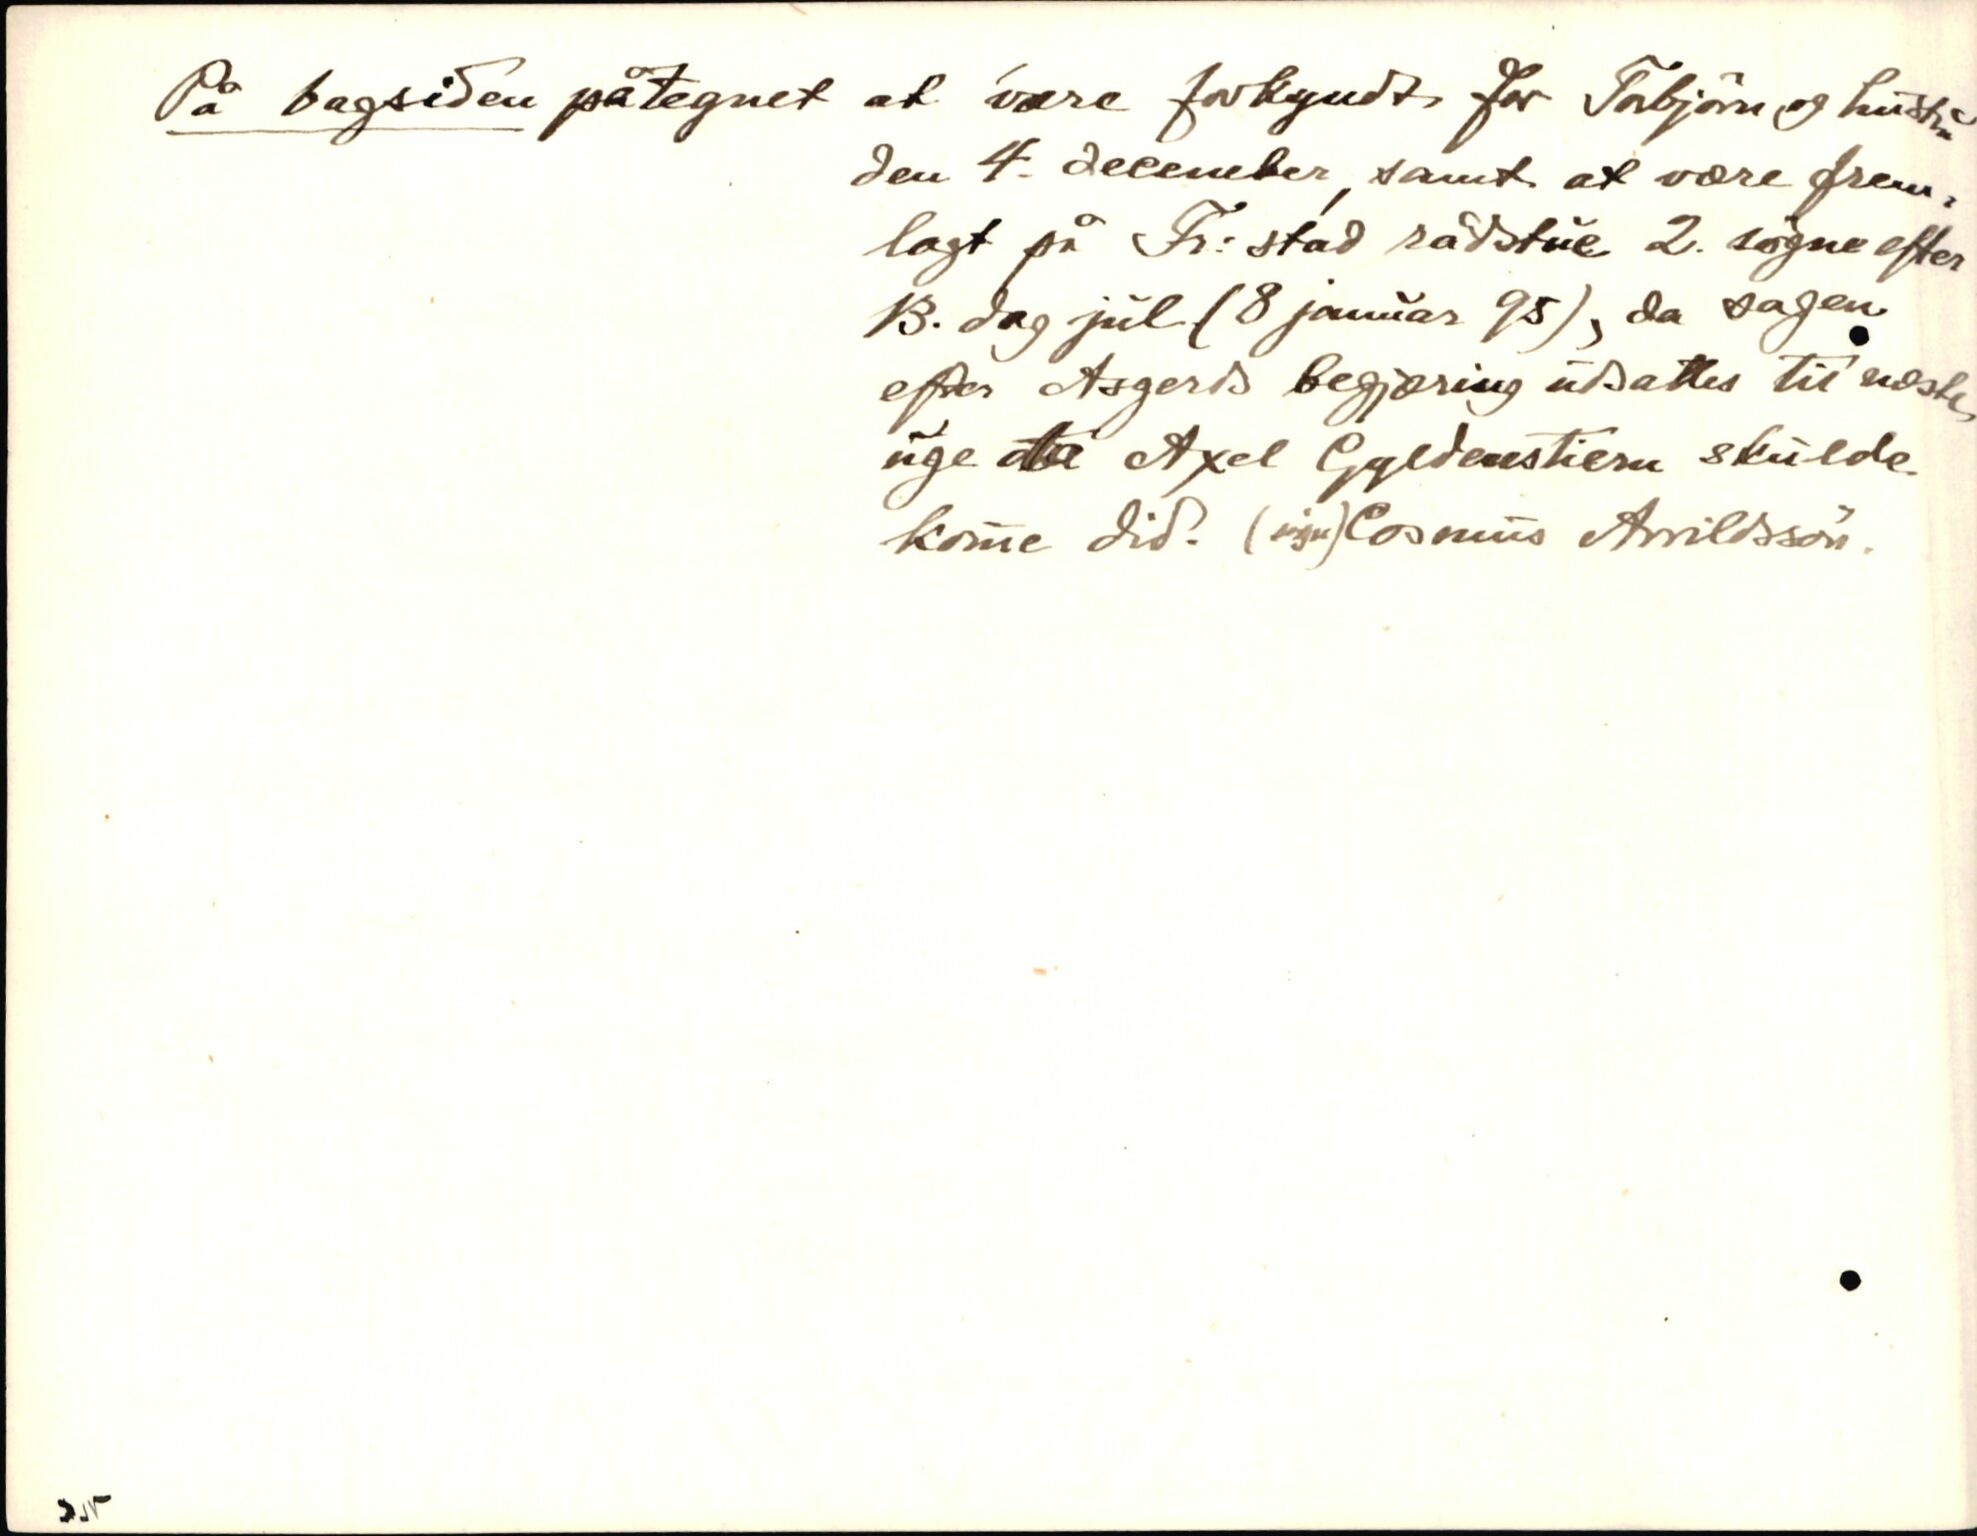 På bagsiden påtegnet at være forkyndt for Torbjörn og hustru
den 4. december, samt at være frem-
lagt på Fr: stad rådstue 2. sögne efter
13. dag jul (8 januar 95), da sagen
efter Asgerds begjæring udsattes til næste
uge da Axel Gyldenstiern skulde
kom̄e did. Cosmus Arvildssön.